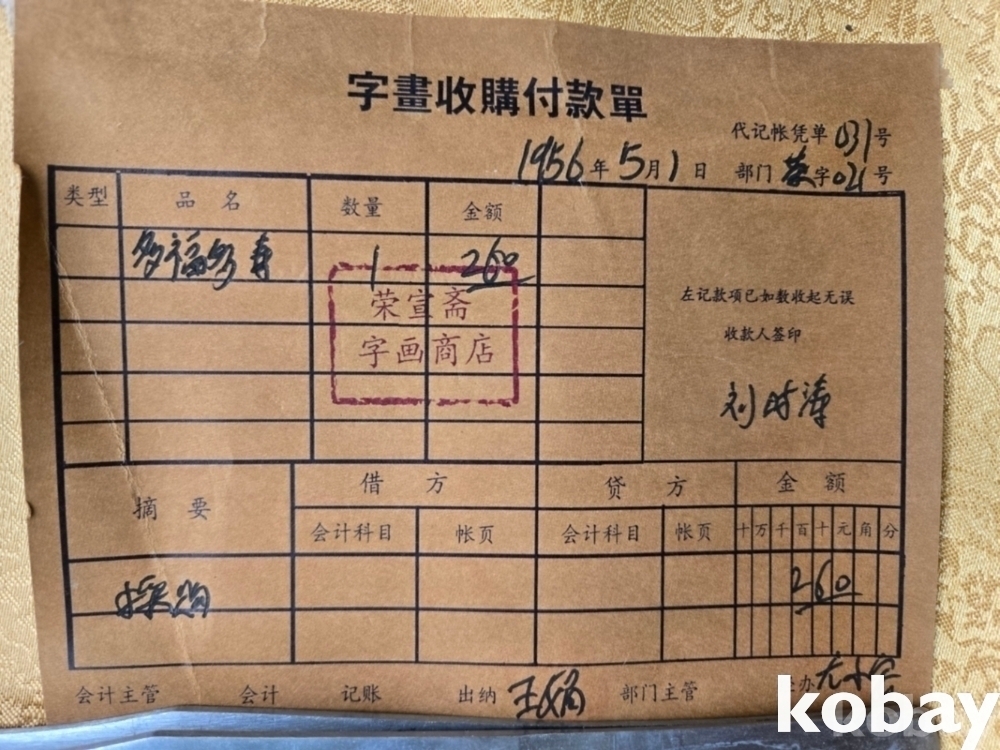 字畫收購付款單
代记帐凭单 031 号
1956 年 5 月 1 日 部门 荣 字 021 号
类型 品名 数量 金额
多福多寿 1 260
荣宣斋
字画商店
左记款项已如数收起无误
收款人签印
刘时涛
摘要 借方 贷方 金额
会计科目 帐页 会计科目 帐页 十 万 千 百 十 元 角 分
采购 260
会计主管 会计 记账 出纳 部门主管 办
kobay